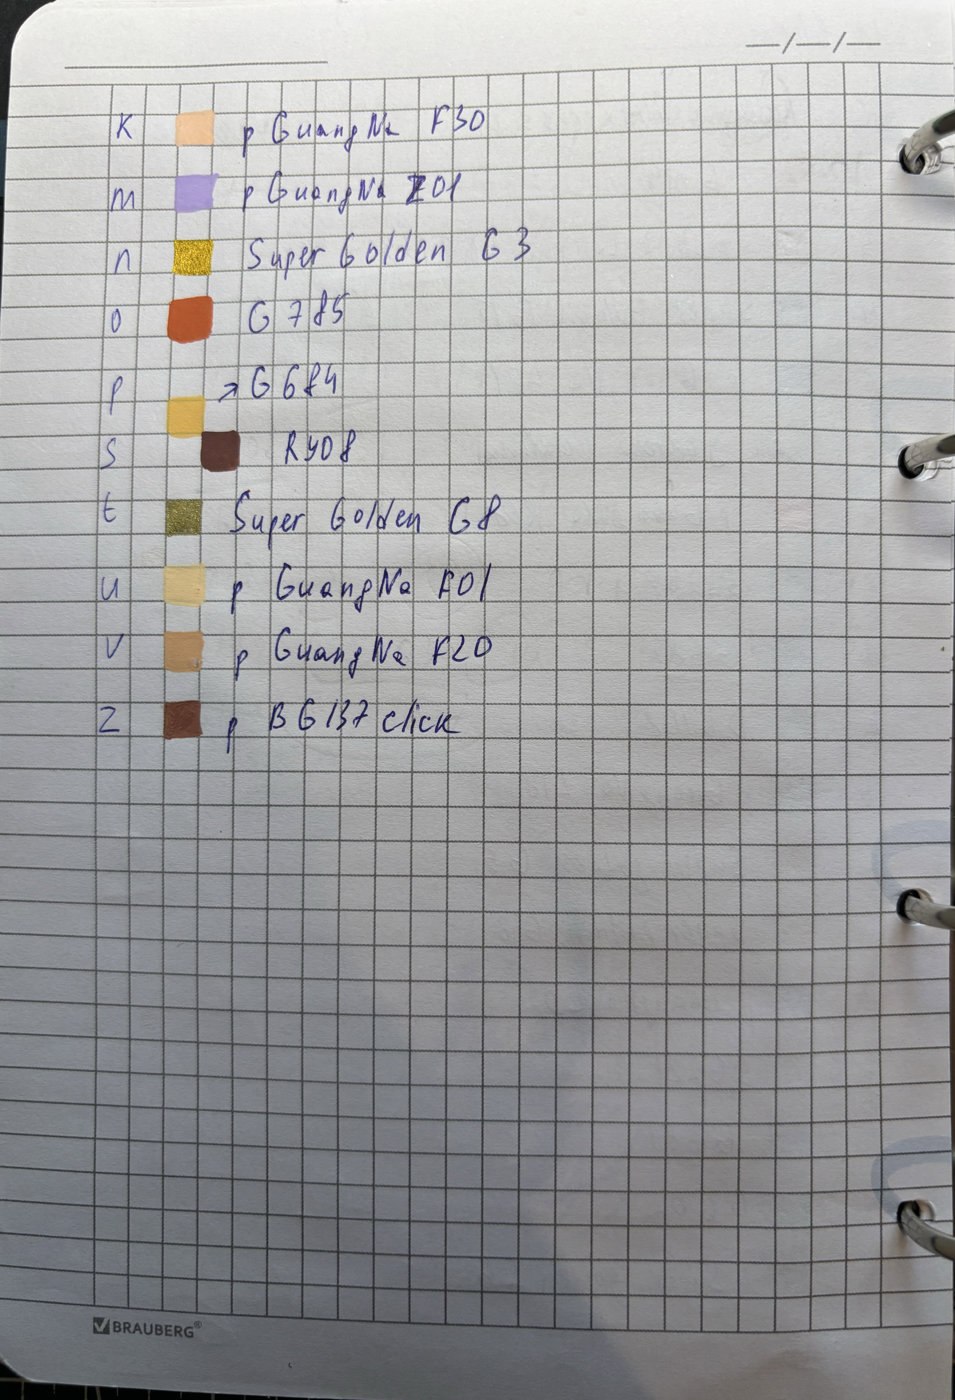 —/—/—
K p GuangNa F30
m p GuangNa Z01
n Super Golden G3
o G785
p → G684
S RY08
t Super Golden G8
u p GuangNa F01
V p GuangNa F20
Z p BG137 click
BRAUBERG®